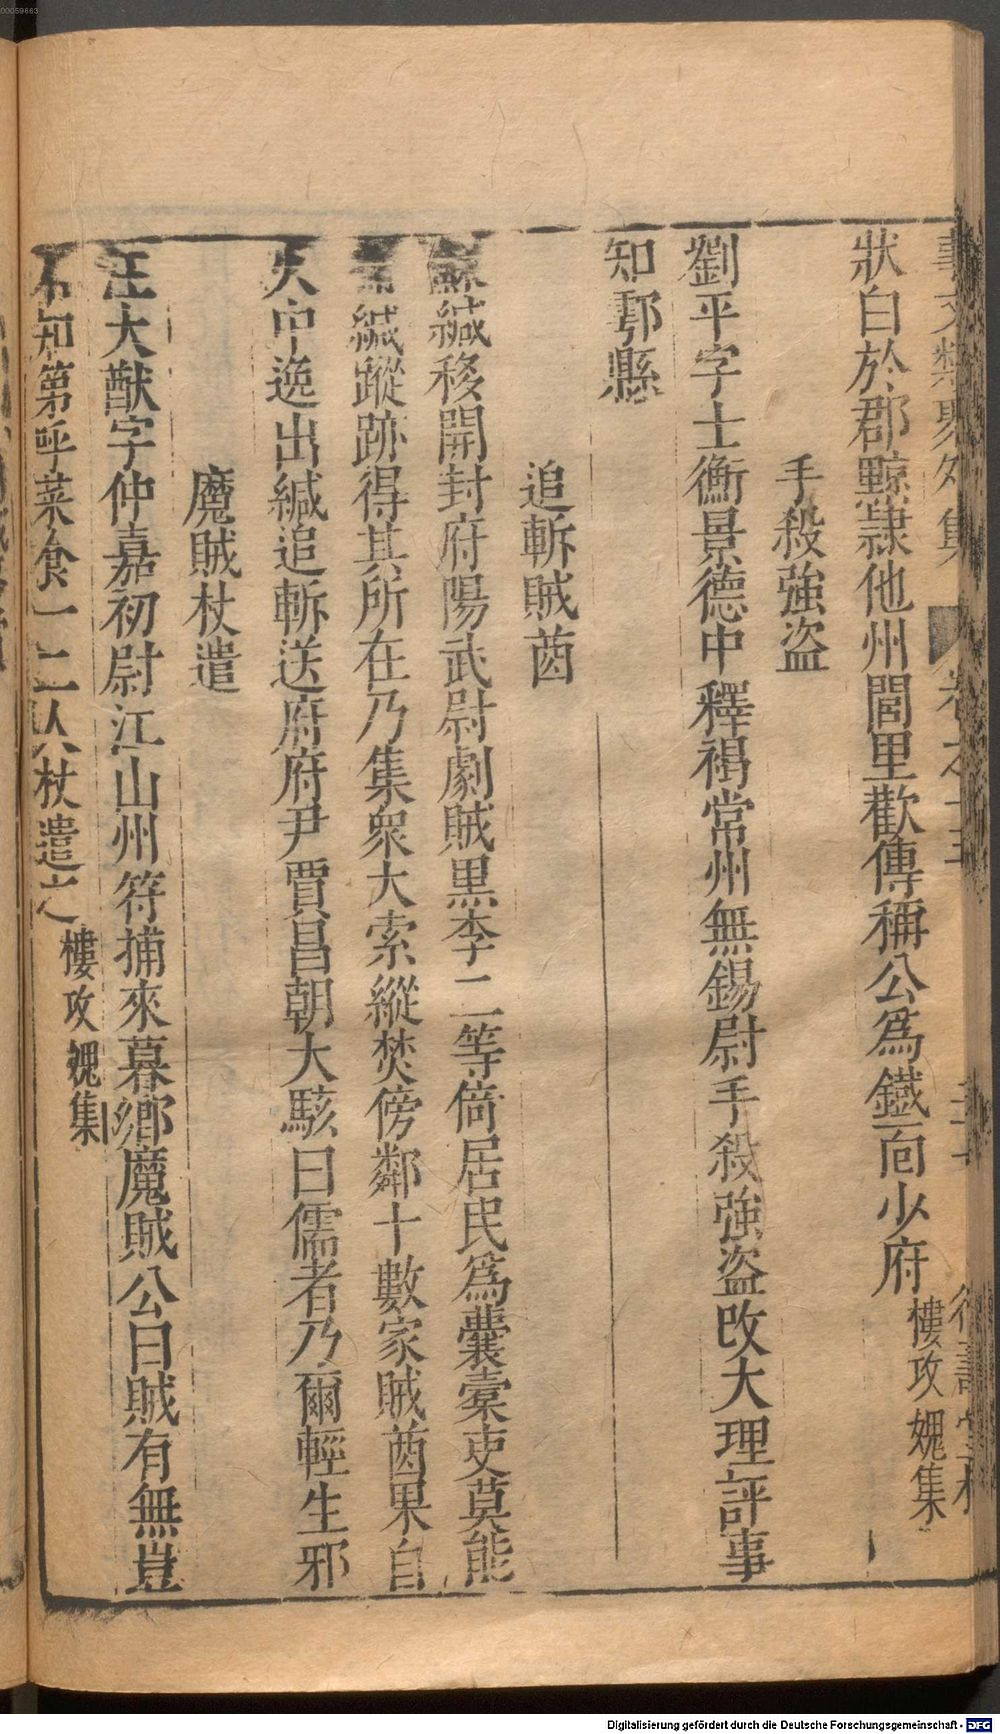 狀白於郡黥隸他州閭里歡傳稱公爲鐵面少府樓攻媿集
手殺強盜
劉平字士衡景德中釋褐常州無錫尉手殺強盜改大理評事
知鄠縣
追斬賊酋
蘇緘移開封府陽武尉劇賊黑李二等倚居民爲囊橐吏莫能
緘蹤跡得其所在乃集衆大索縱焚傍鄰十數家賊酋果自
火中逸出緘追斬送府府尹賈昌朝大駭曰儒者乃爾輕生邪
魔賊杖遣
汪大猷字仲嘉初尉江山州符捕來暮鄉魔賊公曰賊有無豈
不知第呼菜食一二人杖遣之樓攻媿集
事文類聚外集 卷之十三
00059663
Digitalisierung gefördert durch die Deutsche Forschungsgemeinschaft - DFG